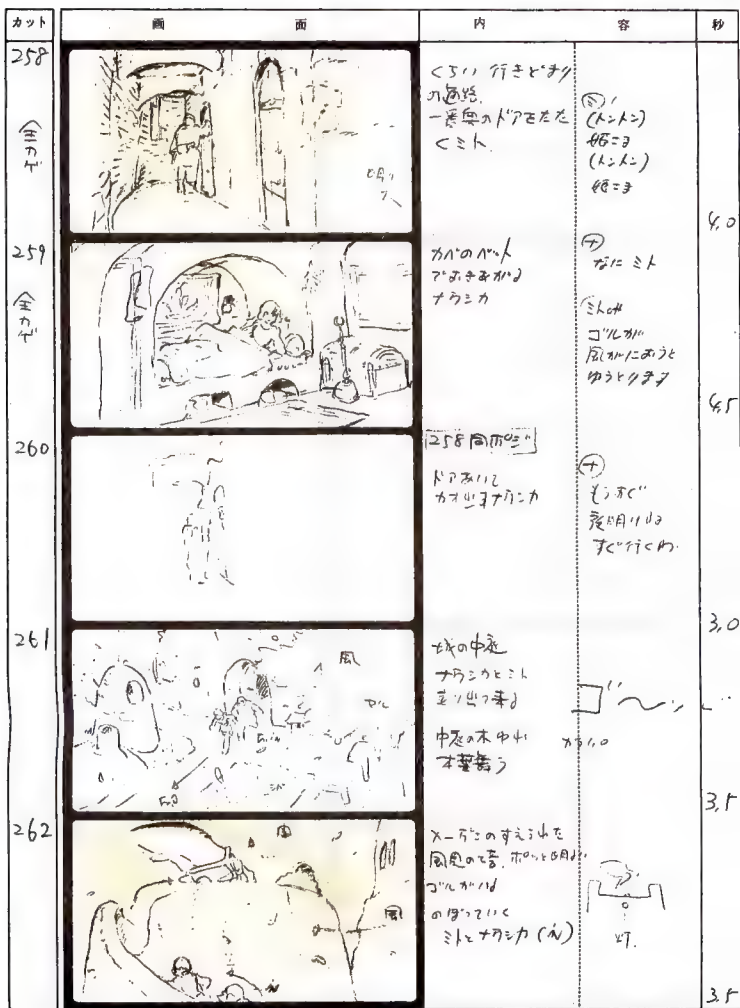 カット 画 面 内 容 秒
258
(全カゲ)
くらい 行きどまり
の通路.
一番奥のドアをたた
くミト.
ミ
(トントン)
姫さま
(トントン)
姫さま
4.0
259
(全カゲ)
カベのベット
でおきあがる
ナウシカ
ナ
なに ミト
ミト
ゴルが
風がにおうと
ゆうとります
4.5
260
258同ポジ
ドアあいて
カオ出すナウシカ
ナ
もうすぐ
夜明けね
すぐ行くわ.
3.0
261
風
城の中庭
ナウシカとミト
走り出て来る
中庭の木
木葉舞う
3.5
262
風
メーヴェのすえられた
風見の塔. ポッと明るい
ゴルがいる
のぼっていく
ミトとナウシカ
灯.
3.5